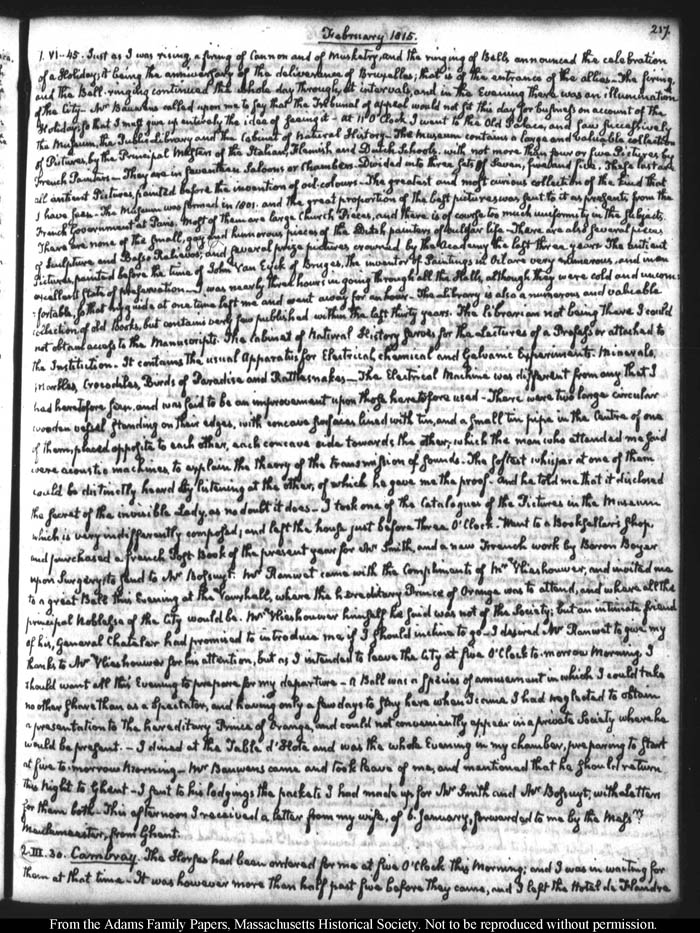 February 1815.
217.
1. VI:45. Just as I was rising, a firing of Cannon and of Musketry, and the ringing of Bells announced the celebration
of a Holiday; it being the anniversary of the deliverance of Bruxelles; that is of the entrance of the allies. The firing,
and the Bell-ringing continued the whole day through, at intervals, and in the Evening there was an illumination
of the City. Mr Bauwens called upon me to say that the Tribunal of appeal would not sit this day for business on account of the
Holiday; so that I must give up entirely the idea of seeing it. At 11 O'Clock I went to the Old Palace, and saw successively
the Museum, the Public Library and the Cabinet of Natural History. The Museum contains a large and valuable collection
of Pictures, by the Principal Masters of the Italian, Flemish and Dutch Schools, with not more than four or five Pictures by
French Painters. They are in seventeen Saloons or Chambers. Divided into three sets of Seven, five and five. These last are
all antient Pictures, painted before the invention of oil-colours. The greatest and most curious collection of the kind that
I have seen. The Museum was formed in 1801. and the great proportion of the best pictures was sent to it as presents from the
French Government at Paris. Most of them are large Church Pieces, and there is of course too much uniformity in the subjects.
There are none of the small, gay and humorous pieces of the Dutch painters of vulgar life. There are also several pieces
of Sculpture and Basso Relievos; and several prize pictures crowned by the Academy the last three years. The antient
Pictures, painted before the time of John Van Eyck of Bruges, the inventor of Paintings in Oil are very numerous, and in an
excellent State of preservation. I was nearly three hours in going through all the Halls, although they were cold and uncom-
-fortable, so that my guide at one time left me and went away for an hour. The Library is also a numerous and valuable
collection of old Books, but contains very few published within the last thirty years. The librarian not being there I could
not obtain access to the Manuscripts. The Cabinet of Natural History serves for the Lectures of a Professor attached to
the Institution. It contains the usual Apparatus for Electrical, chemical and Galvanic Experiments. Minerals,
Marbles, Crocodiles, Burds of Paradise and Rattlesnakes. The Electrical Machine was different from any that I
had heretofore seen, and was said to be an improvement upon those heretofore used. There were two large circular
wooden vessels standing on their edges, with concave surfaces lined with tin, and a small tin pipe in the Centre of one
of them, placed opposite to each other, each concave side towards the other, which the man who attended me said
were acoustic machines, to explain the theory of the transmission of sounds. The softest whisper at one of them
could be distinctly heard by listening at the other, of which he gave me the proof. And he told me that it disclosed
the secret of the invisible Lady, as no doubt it does. I took one of the Catalogues of the Pictures in the Museum
which is very indifferently composed; and left the house just before three O'Clock. Went to a Bookseller's Shop,
and purchased a French Post Book of the present year for Mr Smith, and a new French work by Baron Boyer
upon Surgery, to send to Mr Bossuyt. Mr Ranwet came with the Compliments of Mr Vlieshouwer, and invited me
to a great Ball this Evening at the Vauxhall, where the hereditary Prince of Orange was to attend, and where all the
principal Noblesse of the City would be. Mr Vlieshouwer himself he said was not of the Society; but an intimate friend
of his, General Chataler had promised to introduce me if I should incline to go. I desired Mr Ranwet to give my
thanks to Mr Vlieshouwer for his attention, but as I intended to leave the City at five O'Clock to-morrow Morning, I
should want all this Evening to prepare for my departure. A Ball was a species of amusement in which I could take
no other share than as a Spectator, and having only a few days to stay here when I came I had neglected to obtain
a presentation to the hereditary Prince of Orange, and could not conveniently appear in a private Society where he
would be present. I dined at the Table d'Hote and was the whole Evening in my chamber, preparing to start
at five to-morrow Morning. Mr Bauwens came and took leave of me, and mentioned that he should return
this Night to Ghent. I sent to his lodgings the packets I had made up for Mr Smith and Mr Bossuyt, with Letters
for them both. This afternoon I received a letter from my wife, of 6. January, forwarded to me by the Mess.rs
Meulemeester, from Ghent.
2. III. 30. Cambray. The Horses had been ordered for me at five O'Clock this Morning; and I was in waiting for
them at that time. It was however more than half past five before they came, and I left the Hotel de Flandre
From the Adams Family Papers, Massachusetts Historical Society. Not to be reproduced without permission.